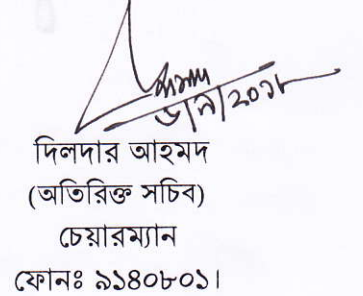 ৬/৭/২০১৮
দিলদার আহমদ
(অতিরিক্ত সচিব)
চেয়ারম্যান
ফোনঃ ৯১৪০৮০১।